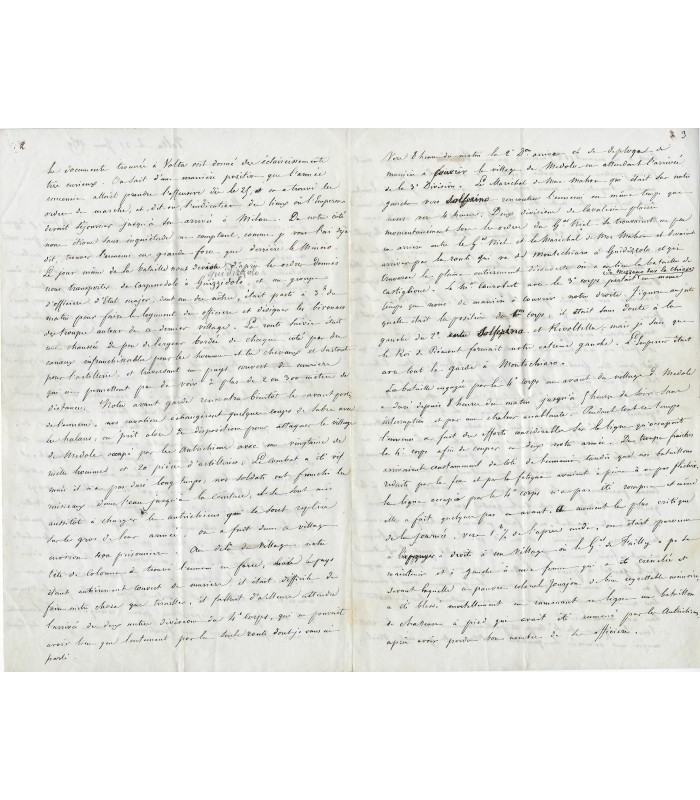 2
les documents trouvés à Volta ont donné des éclaircissements
très curieux. On a lait d'une manière positive que l'armée
ennemie allait prendre l'offensive dès le 25, on a trouvé les
ordres de marche, et dit on l'indication du lieu où l'Empereur
devait séjourner jusqu'à son arrivée à Milan. De notre côté
nous étions sans inquiétude en comptant, comme je vous l'ai déjà
dit, trouver l'ennemi en grande force que derrière le Mincio.
Le jour même de la bataille nous devions d'après les ordres donnés
nous transporter de Carpenedolo à Guidizzolo, et un groupe
d'officiers d'Etat major, dont un des nôtres, était parti à 3 h du
matin pour faire le logement des officiers et désigner les bivouacs
des troupes autour de ce dernier village. La route suivie était
une chaussée de peu de largeur bordée de chaque côté par des
canaux infranchissables pour les hommes et les chevaux et surtout
pour l'artillerie, et traversant un pays couvert de manière
qui ne permettent pas de voir à plus de 2 ou 300 mètres de
distance. Notre avant garde rencontra bientôt les avant postes
de l'ennemi, nos cavaliers échangèrent quelques coups de sabre avec
les hulans, on prit alors des dispositions pour attaquer le village
de Medole occupé par les Autrichiens avec une vingtaine de
mille hommes et 20 pièces d'artillerie. Le combat a été vif
mais il n'a pas duré longtemps, nos soldats ont franchi les
ruisseaux dans l'eau jusqu'à la ceinture, et se sont mis
aussitôt à charger les autrichiens qui se sont repliés
sur le gros de leur armée. on a fait dans ce village
environ 400 prisonniers. Au delà du village notre
tête de colonne a trouvé l'ennemi en force, mais le pays
étant entièrement couvert de mûriers il était difficile de
faire autre chose que tirailler, il fallait d'ailleurs attendre
l'arrivée des deux autres divisions du 4e corps, qui ne pouvait
avoir lieu que lentement par la seule route dont je vous ai
parlé.
3
Vers 8 heures du matin la 2e Don arriva et se déploya de
manière à couvrir le village de Medole en attendant l'arrivée
de la 3e Division. Le Maréchal de Mac Mahon qui était sur notre
gauche vers Solférino rencontra l'ennemi en même temps que
nous vers 4 heures. Deux divisions de cavalerie placées
momentanément sous les ordres du Gal Niel se trouvaient un peu
en arrière entre le Gal Niel et le Maréchal de Mac Mahon et devaient
arriver par la route qui va de Montechiaro à Guidizzolo et qui
traverse la plaine entièrement découverte où a eu lieu la bataille de
Castiglione. Le Mal Canrobert avec le 3e corps partait au même
de Mezzane sur la Chiese
temps que nous de manière à couvrir notre droite. J'ignore au juste
quelle était la position du 1er corps, il était sans doute à la
gauche du 2e entre Solférino et Rivoltella, mais je sais que
le Roi de Piémont formait notre extrême gauche. L'Empereur était
avec toute la garde à Montechiaro.
La bataille engagée par le 4e corps en avant du village de Medole
a duré depuis 8 heures du matin jusqu'à 5 heures du soir sans
interruption et par une chaleur accablante. Pendant tout ce temps
l'ennemi a fait des efforts considérables sur la ligne qu'occupait
le 4e corps afin de couper en deux notre armée. Des troupes fraîches
arrivaient constamment du côté de l'ennemi tandis que nos bataillons
réduits par le feu et par la fatigue avaient à peine à ne pas fléchir.
La ligne occupée par le 4e corps n'a pas été rompue et même
elle a fait quelques pas en avant. Au moment le plus critique
de la journée, vers 2 h 1/2 de l'après midi, on était parvenu
à s'appuyer à droite à un village où le Gal de Failly a pu se
maintenir et à gauche à une ferme qui a été crénelée et
devant laquelle ce pauvre colonel Jourjon de bien regrettable mémoire
a été blessé mortellement en ramenant en ligne un bataillon
de chasseurs à pied qui avait été ramené par les Autrichiens
après avoir perdu bon nombre de ses officiers.